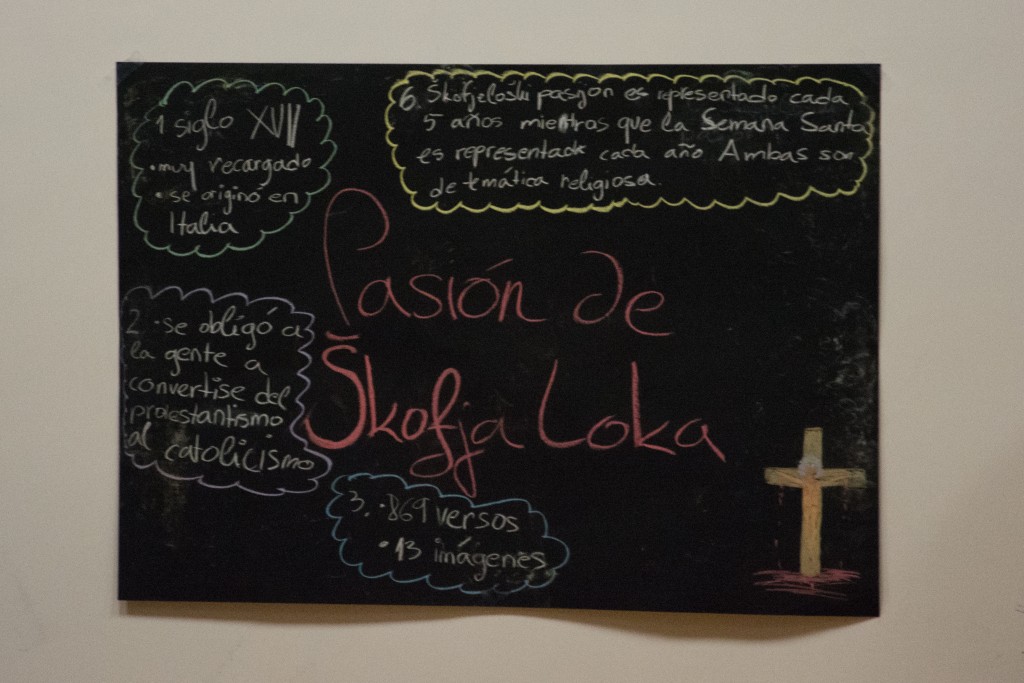 1 siglo XVII
• muy recargado
• se originó en
Italia
6. Škofjeloški pasijon es representado cada
5 años mientras que la Semana Santa
es representada cada año Ambas son
de temática religiosa.
Pasión de
Škofja Loka
2. • se obligó a
la gente a
convertise del
protestantismo
al catolicismo
3. • 869 versos
• 13 imágenes